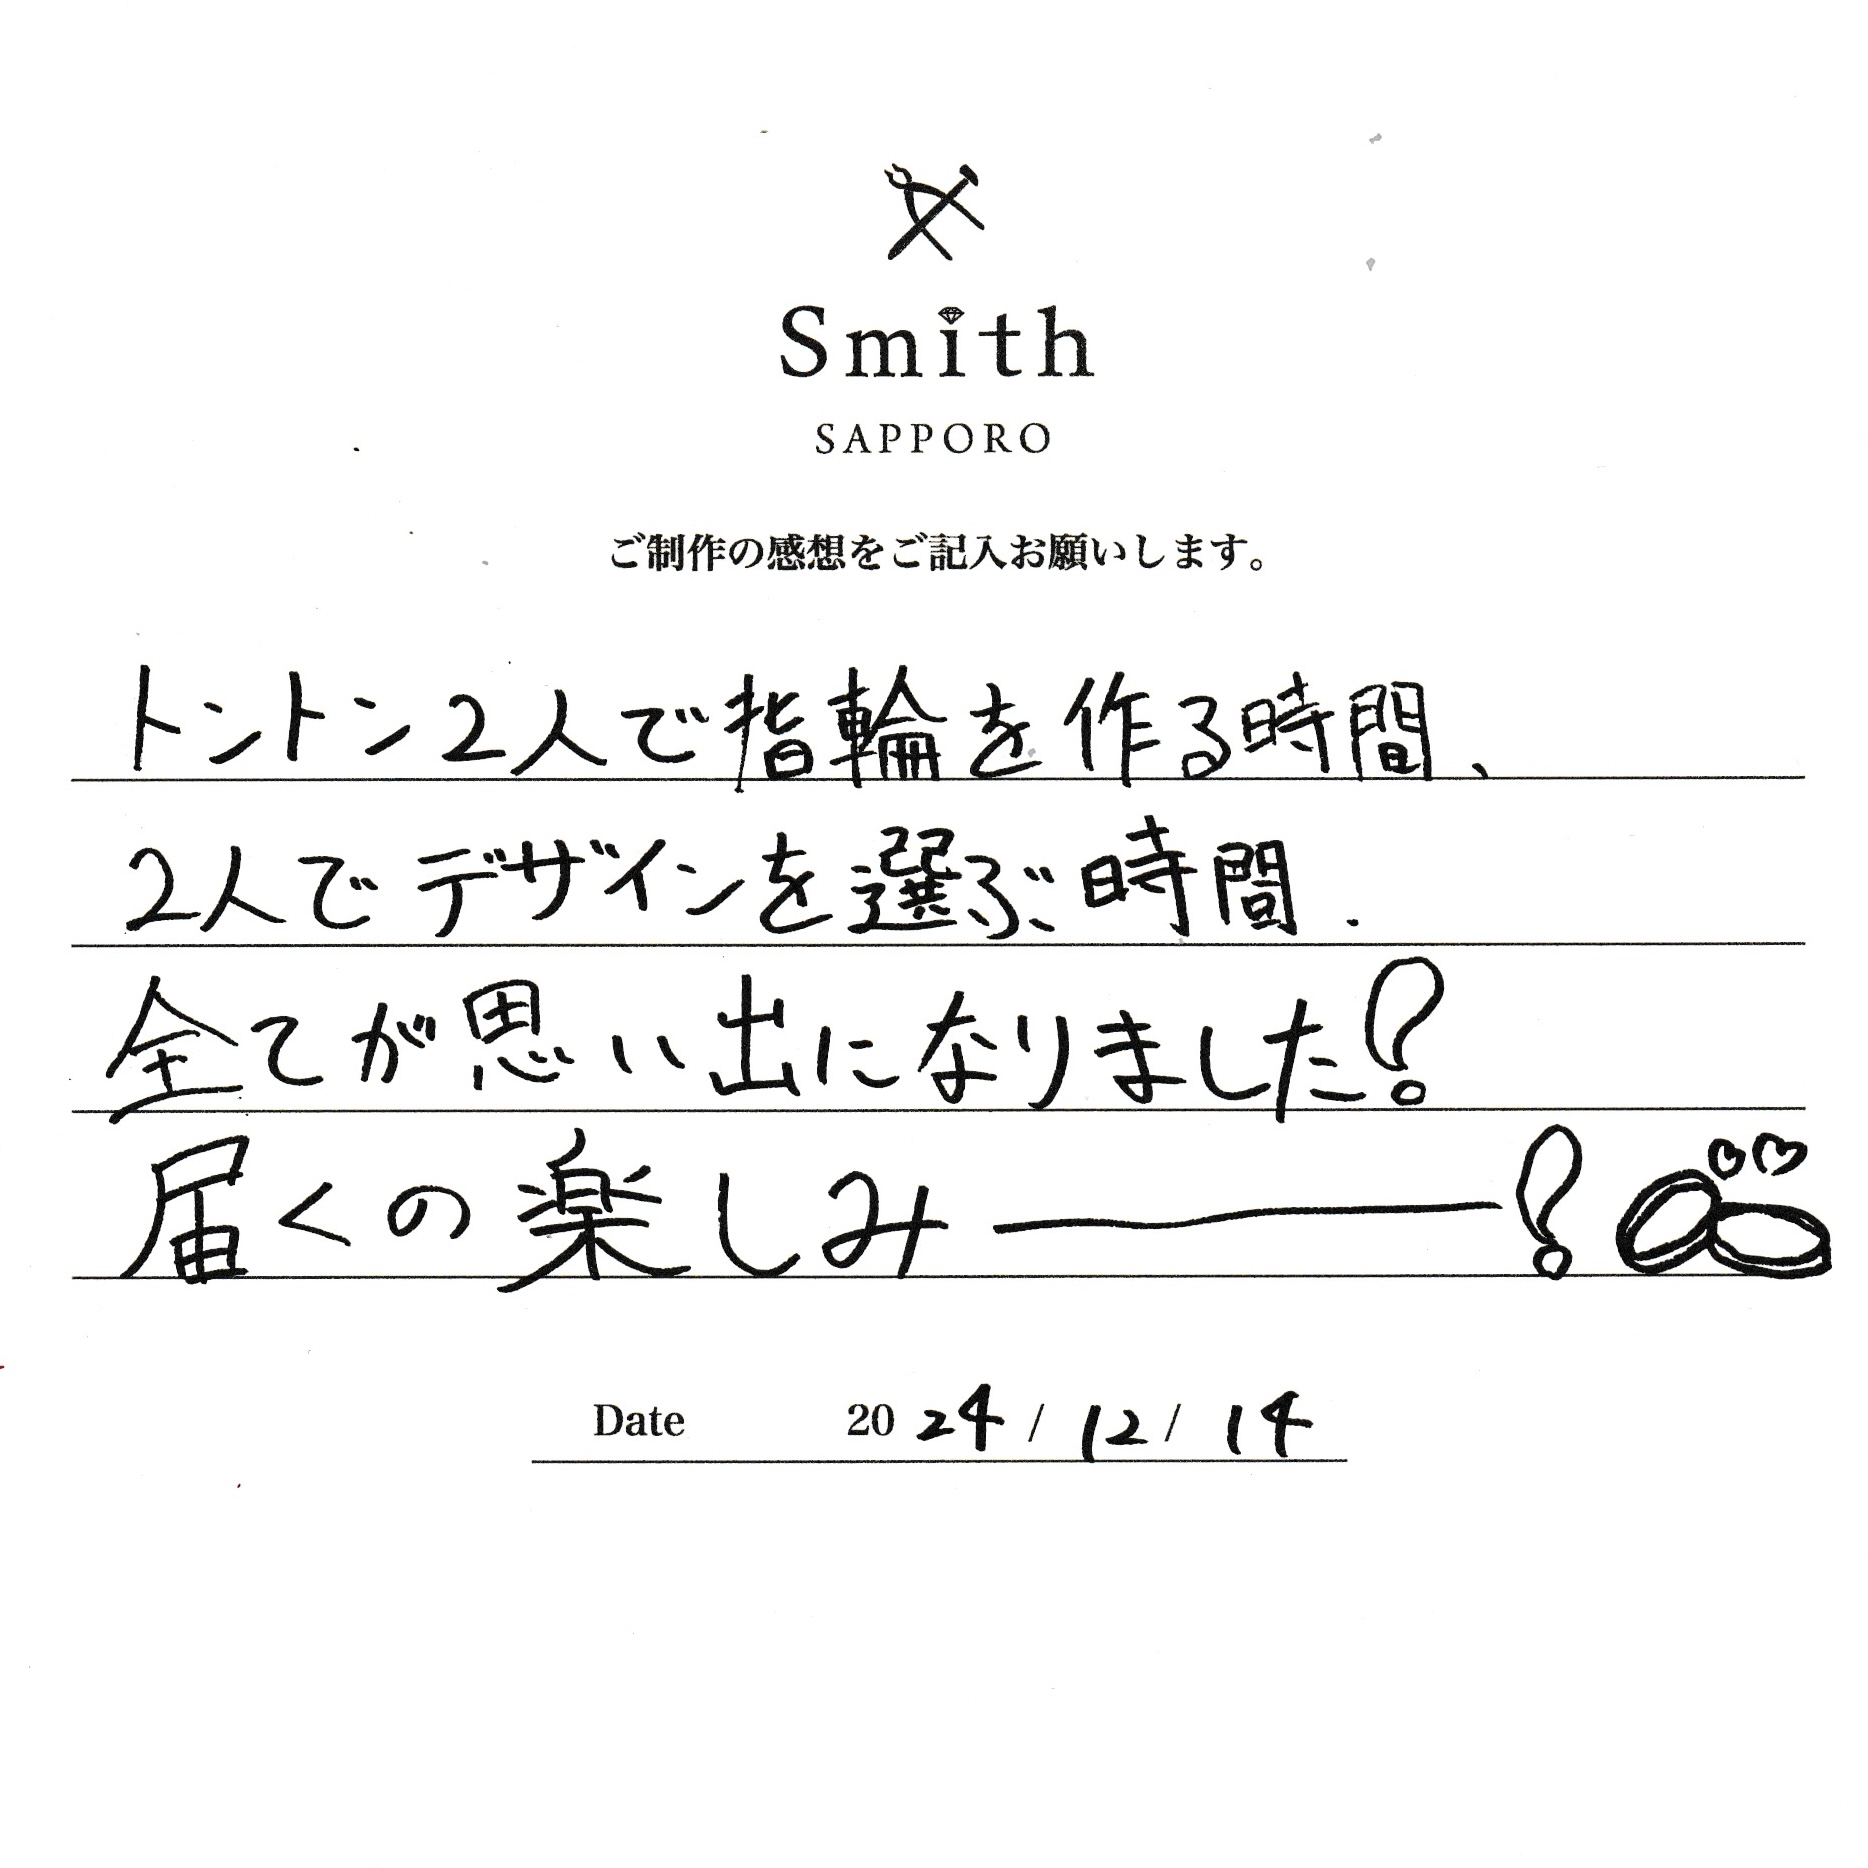 Smith
SAPPORO
ご制作の感想をご記入お願いします。
トントン2人で指輪を作る時間、
2人でデザインを選ぶ時間.
全てが思い出になりました!
届くの楽しみー!
Date 2024/12/14